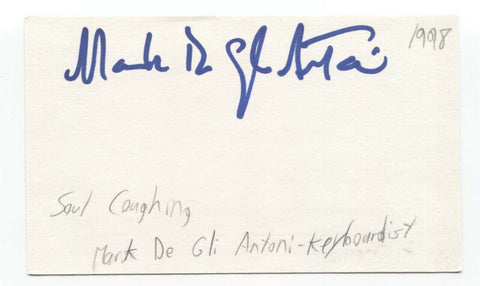 1998
Mark De Gli Antoni
Soul Coughing
Mark De Gli Antoni-Keyboardist